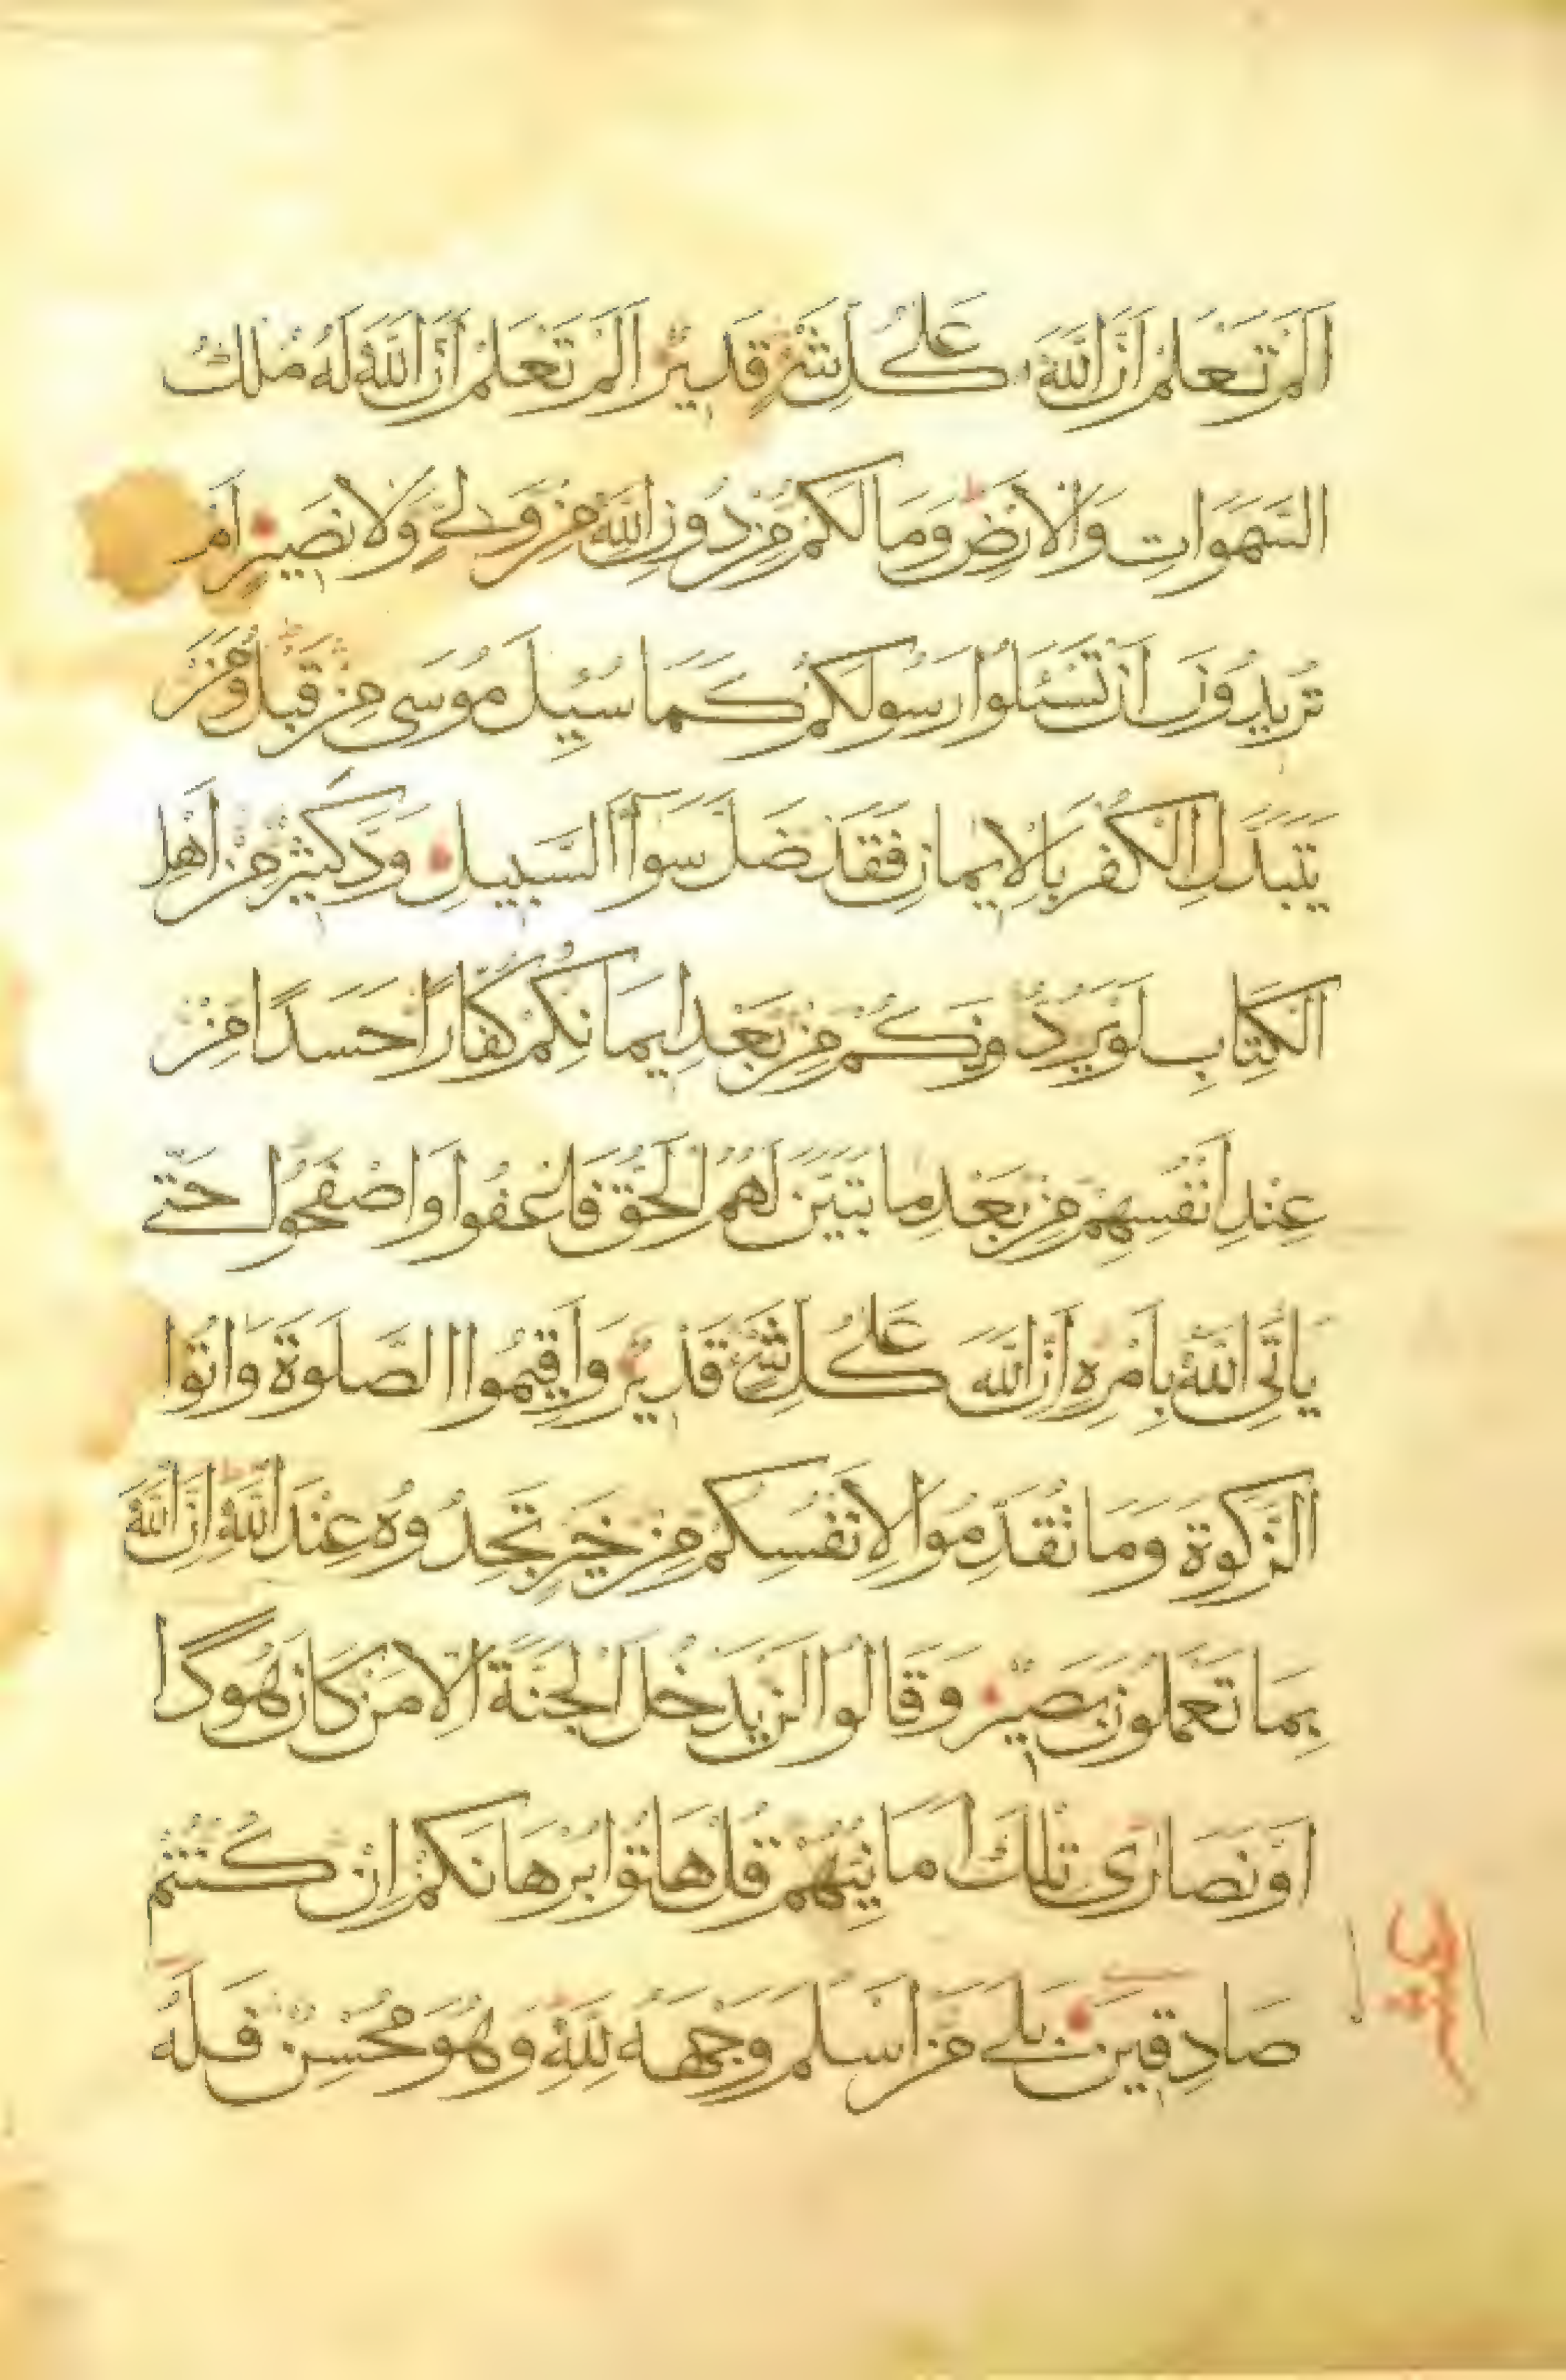 اَلَمْ تَعْلَمْ اَنَّ اللّٰهَ عَلٰى كُلِّ شَىْءٍ قَدِيرٌ اَلَمْ تَعْلَمْ اَنَّ اللّٰهَ لَهُ مُلْكُ
السَّمٰوَاتِ وَالْاَرْضِ وَمَا لَكُمْ مِنْ دُونِ اللّٰهِ مِنْ وَلِىٍّ وَلَا نَصِيرٍ اَمْ
تُرِيدُونَ اَنْ تَسْئَلُوا رَسُولَكُمْ كَمَا سُئِلَ مُوسَى مِنْ قَبْلُ وَمَنْ
يَتَبَدَّلِ الْكُفْرَ بِالْاِيمَانِ فَقَدْ ضَلَّ سَوَآءَ السَّبِيلِ وَدَّ كَثِيرٌ مِنْ اَهْلِ
الْكِتَابِ لَوْ يَرُدُّونَكُمْ مِنْ بَعْدِ اِيمَانِكُمْ كُفَّارًا حَسَدًا مِنْ
عِنْدِ اَنْفُسِهِمْ مِنْ بَعْدِ مَا تَبَيَّنَ لَهُمُ الْحَقُّ فَاعْفُوا وَاصْفَحُوا حَتّٰى
يَاْتِىَ اللّٰهُ بِاَمْرِهِ اِنَّ اللّٰهَ عَلٰى كُلِّ شَىْءٍ قَدِيرٌ وَاَقِيمُوا الصَّلٰوةَ وَاٰتُوا
الزَّكٰوةَ وَمَا تُقَدِّمُوا لِاَنْفُسِكُمْ مِنْ خَيْرٍ تَجِدُوهُ عِنْدَ اللّٰهِ اِنَّ اللّٰهَ
بِمَا تَعْمَلُونَ بَصِيرٌ وَقَالُوا لَنْ يَدْخُلَ الْجَنَّةَ اِلَّا مَنْ كَانَ هُودًا
اَوْ نَصَارٰى تِلْكَ اَمَانِيُّهُمْ قُلْ هَاتُوا بُرْهَانَكُمْ اِنْ كُنْتُمْ
صَادِقِينَ بَلٰى مَنْ اَسْلَمَ وَجْهَهُ لِلّٰهِ وَهُوَ مُحْسِنٌ فَلَهُ
عشر